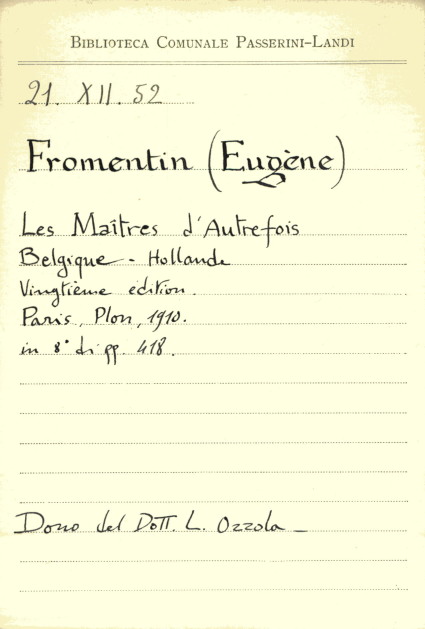 BIBLIOTECA COMUNALE PASSERINI-LANDI
21. XII. 52
Fromentin (Eugène)
Les Maîtres d'Autrefois
Belgique - Hollande
Vingtième édition.
Paris, Plon, 1910.
in 8° di pp. 418.
Dono del Dott. L. Ozzola